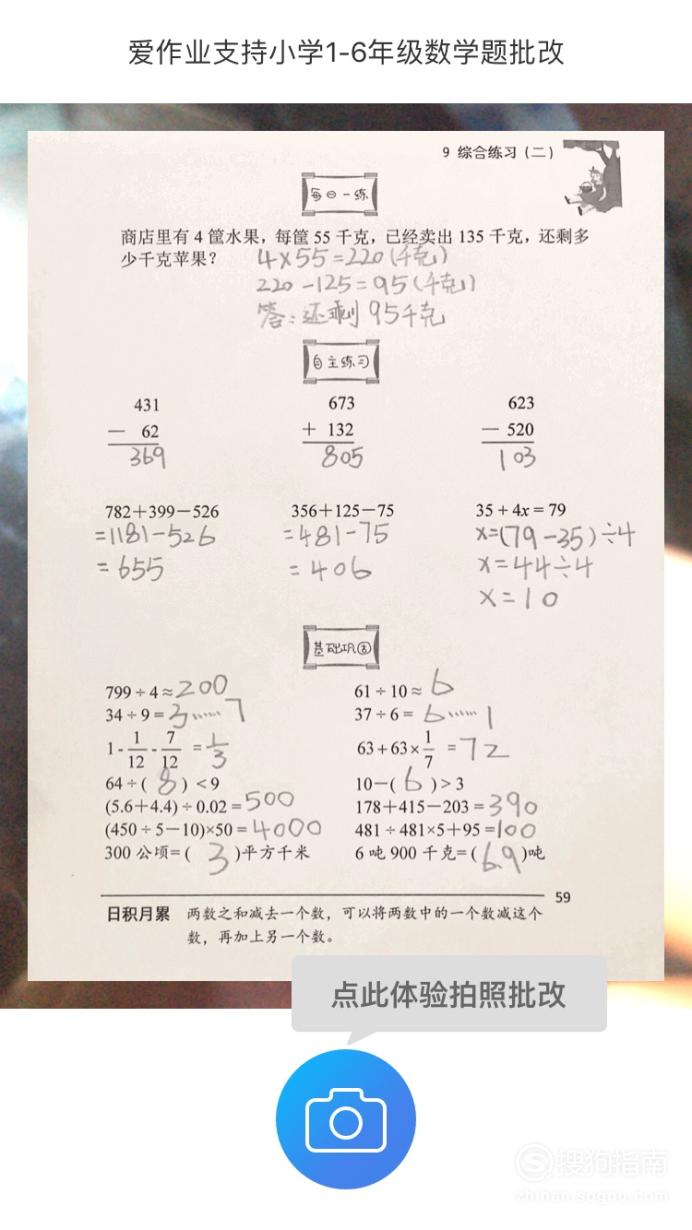 爱作业支持小学1-6年级数学题批改
9 综合练习(二)
每日一练
商店里有 4 筐水果,每筐 55 千克,已经卖出 135 千克,还剩多
少千克苹果?
4×55=220(千克)
220-125=95(千克)
答:还剩95千克
自主练习
431 673 623
- 62 + 132 - 520
369 805 103
782+399-526 356+125-75 35+4x=79
=1181-526 =481-75 x=(79-35)÷4
=655 =406 x=44÷4
x=10
基础巩固
799÷4≈200 61÷10≈6
34÷9=3……7 37÷6=6……1
1-1/12-7/12=1/3 63+63×1/7=72
64÷(8)<9 10-(6)>3
(5.6+4.4)÷0.02=500 178+415-203=390
(450÷5-10)×50=4000 481÷481×5+95=100
300 公顷=(3)平方千米 6 吨 900 千克=(6.9)吨
59
日积月累 两数之和减去一个数,可以将两数中的一个数减这个
数,再加上另一个数。
点此体验拍照批改
搜狗指南
zhinan.sogou.com